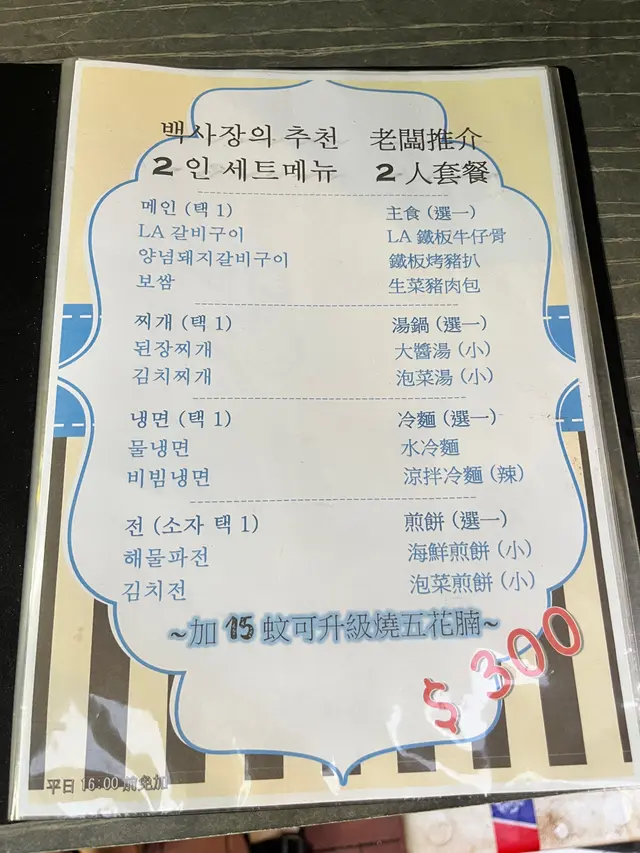 백사장의 추천 老闆推介
2인 세트메뉴 2人套餐
메인 (택 1) 主食 (選一)
LA 갈비구이 LA 鐵板牛仔骨
양념돼지갈비구이 鐵板烤豬扒
보쌈 生菜豬肉包
찌개 (택 1) 湯鍋 (選一)
된장찌개 大醬湯 (小)
김치찌개 泡菜湯 (小)
냉면 (택 1) 冷麵 (選一)
물냉면 水冷麵
비빔냉면 涼拌冷麵 (辣)
전 (소자 택 1) 煎餅 (選一)
해물파전 海鮮煎餅 (小)
김치전 泡菜煎餅 (小)
~加 15 蚊可升級燒五花腩~
$300
平日 16:00 前免加